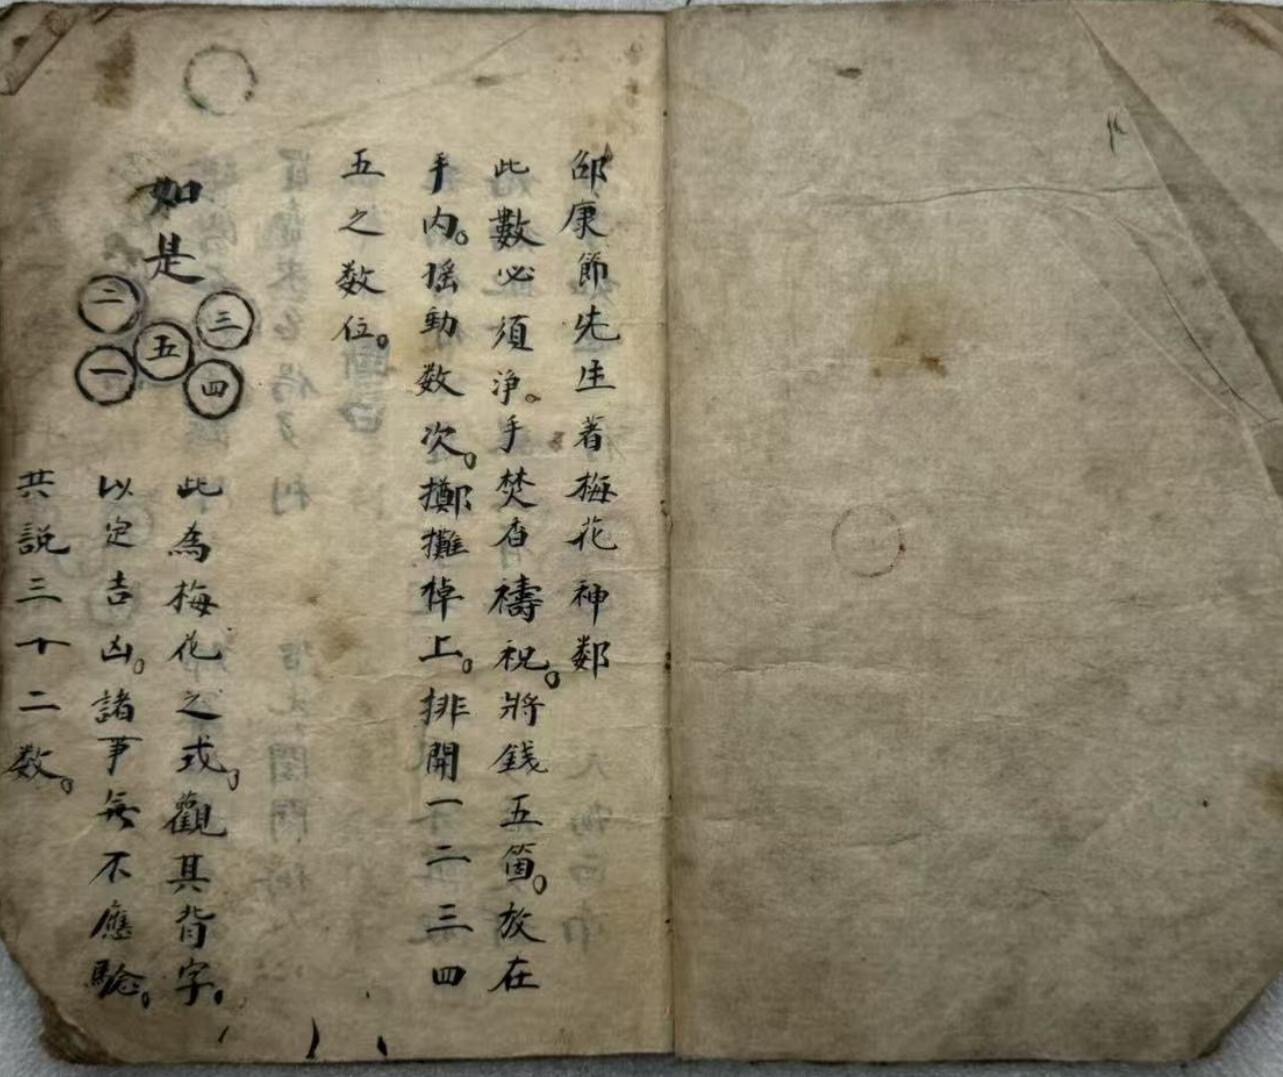 邵康節先生著梅花神鄰
此數必須淨。手焚香禱祝。將錢五箇。放在
手内。搖動数次。擲攤棹上。排開一二三四
五之数位。
如是
二 三
五
一 四
此為梅花之式。觀其背字。
以定吉凶。諸事無不應驗。
共説三十二数。